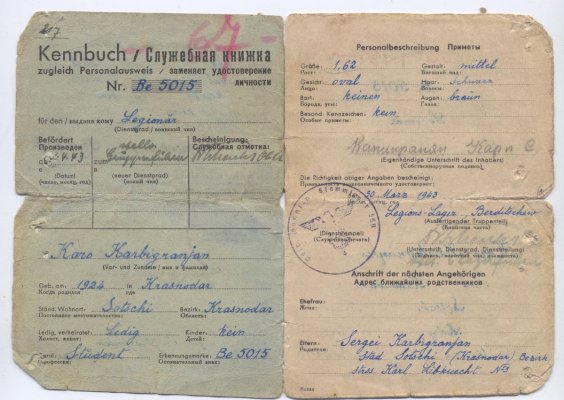 67
Kennbuch / Служебная книжка
zugleich Personalausweis / заменяет удостоверение
личности
Nr. Be 5015
für den / выдана кому Legionär
(Dienstgrad / воинский чин)
Befördert
Произведен
Bescheinigung:
Служебная отметка:
4.43
zum
(Datum)
(число, месяц, год)
(neuer Dienstgrad)
(новый чин)
Karo Karbigranjan
(Vor- und Zuname / имя и фамилия)
Geb. am 1924 in Krasnodar
Когда родился где
Ständ. Wohnort: Sotschi Bezirk: Krasnodar
Постоянное местожительство: Область:
Ledig, verheiratet: Ledig Kinder: kein
Холост, женат: Детей:
Student Erkennungsmarke: Be 5015
(профессия) Опознавательный знак:
Personalbeschreibung Приметы
Größe: 1,62 Gestalt: mittel
Рост: Внешний вид:
Gesicht: oval Haar: schwarz
Лицо: Волосы:
Bart: keinen Augen: braun
Борода, усы: Глаза:
Besond Kennzeichen: kein
Особые приметы:
Карп С
(Eigenhändige Unterschrift des Inhabers)
(Собственноручная подпись)
Die Richtigkeit obiger Angaben bescheinigt:
30. März 1943
Legions-Lager, Berditschew
(Ausfertigender Truppenteil)
(Dienststempel)
(Unterschrift, Dienstgrad, Dienststellung)
Anschrift der nächsten Angehörigen
Адрес ближайших родственников
Ehefrau:
Жена:
Eltern: Sergei Karbigranjan
Родители: Stad Sotschi (Krasnodar) Bezirk
strss. Karl Libknecht N3